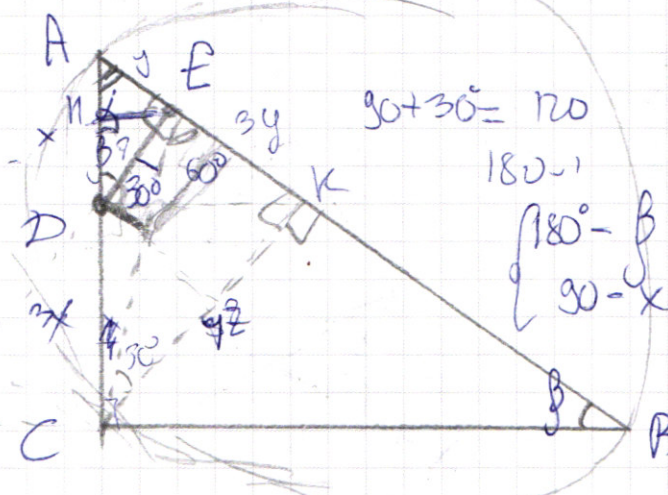 A
y
E
H
3y
90+30°= 120
x
60°
180-
30°
K
D
{180°- β
90 - x
3x
30°
β
C
B